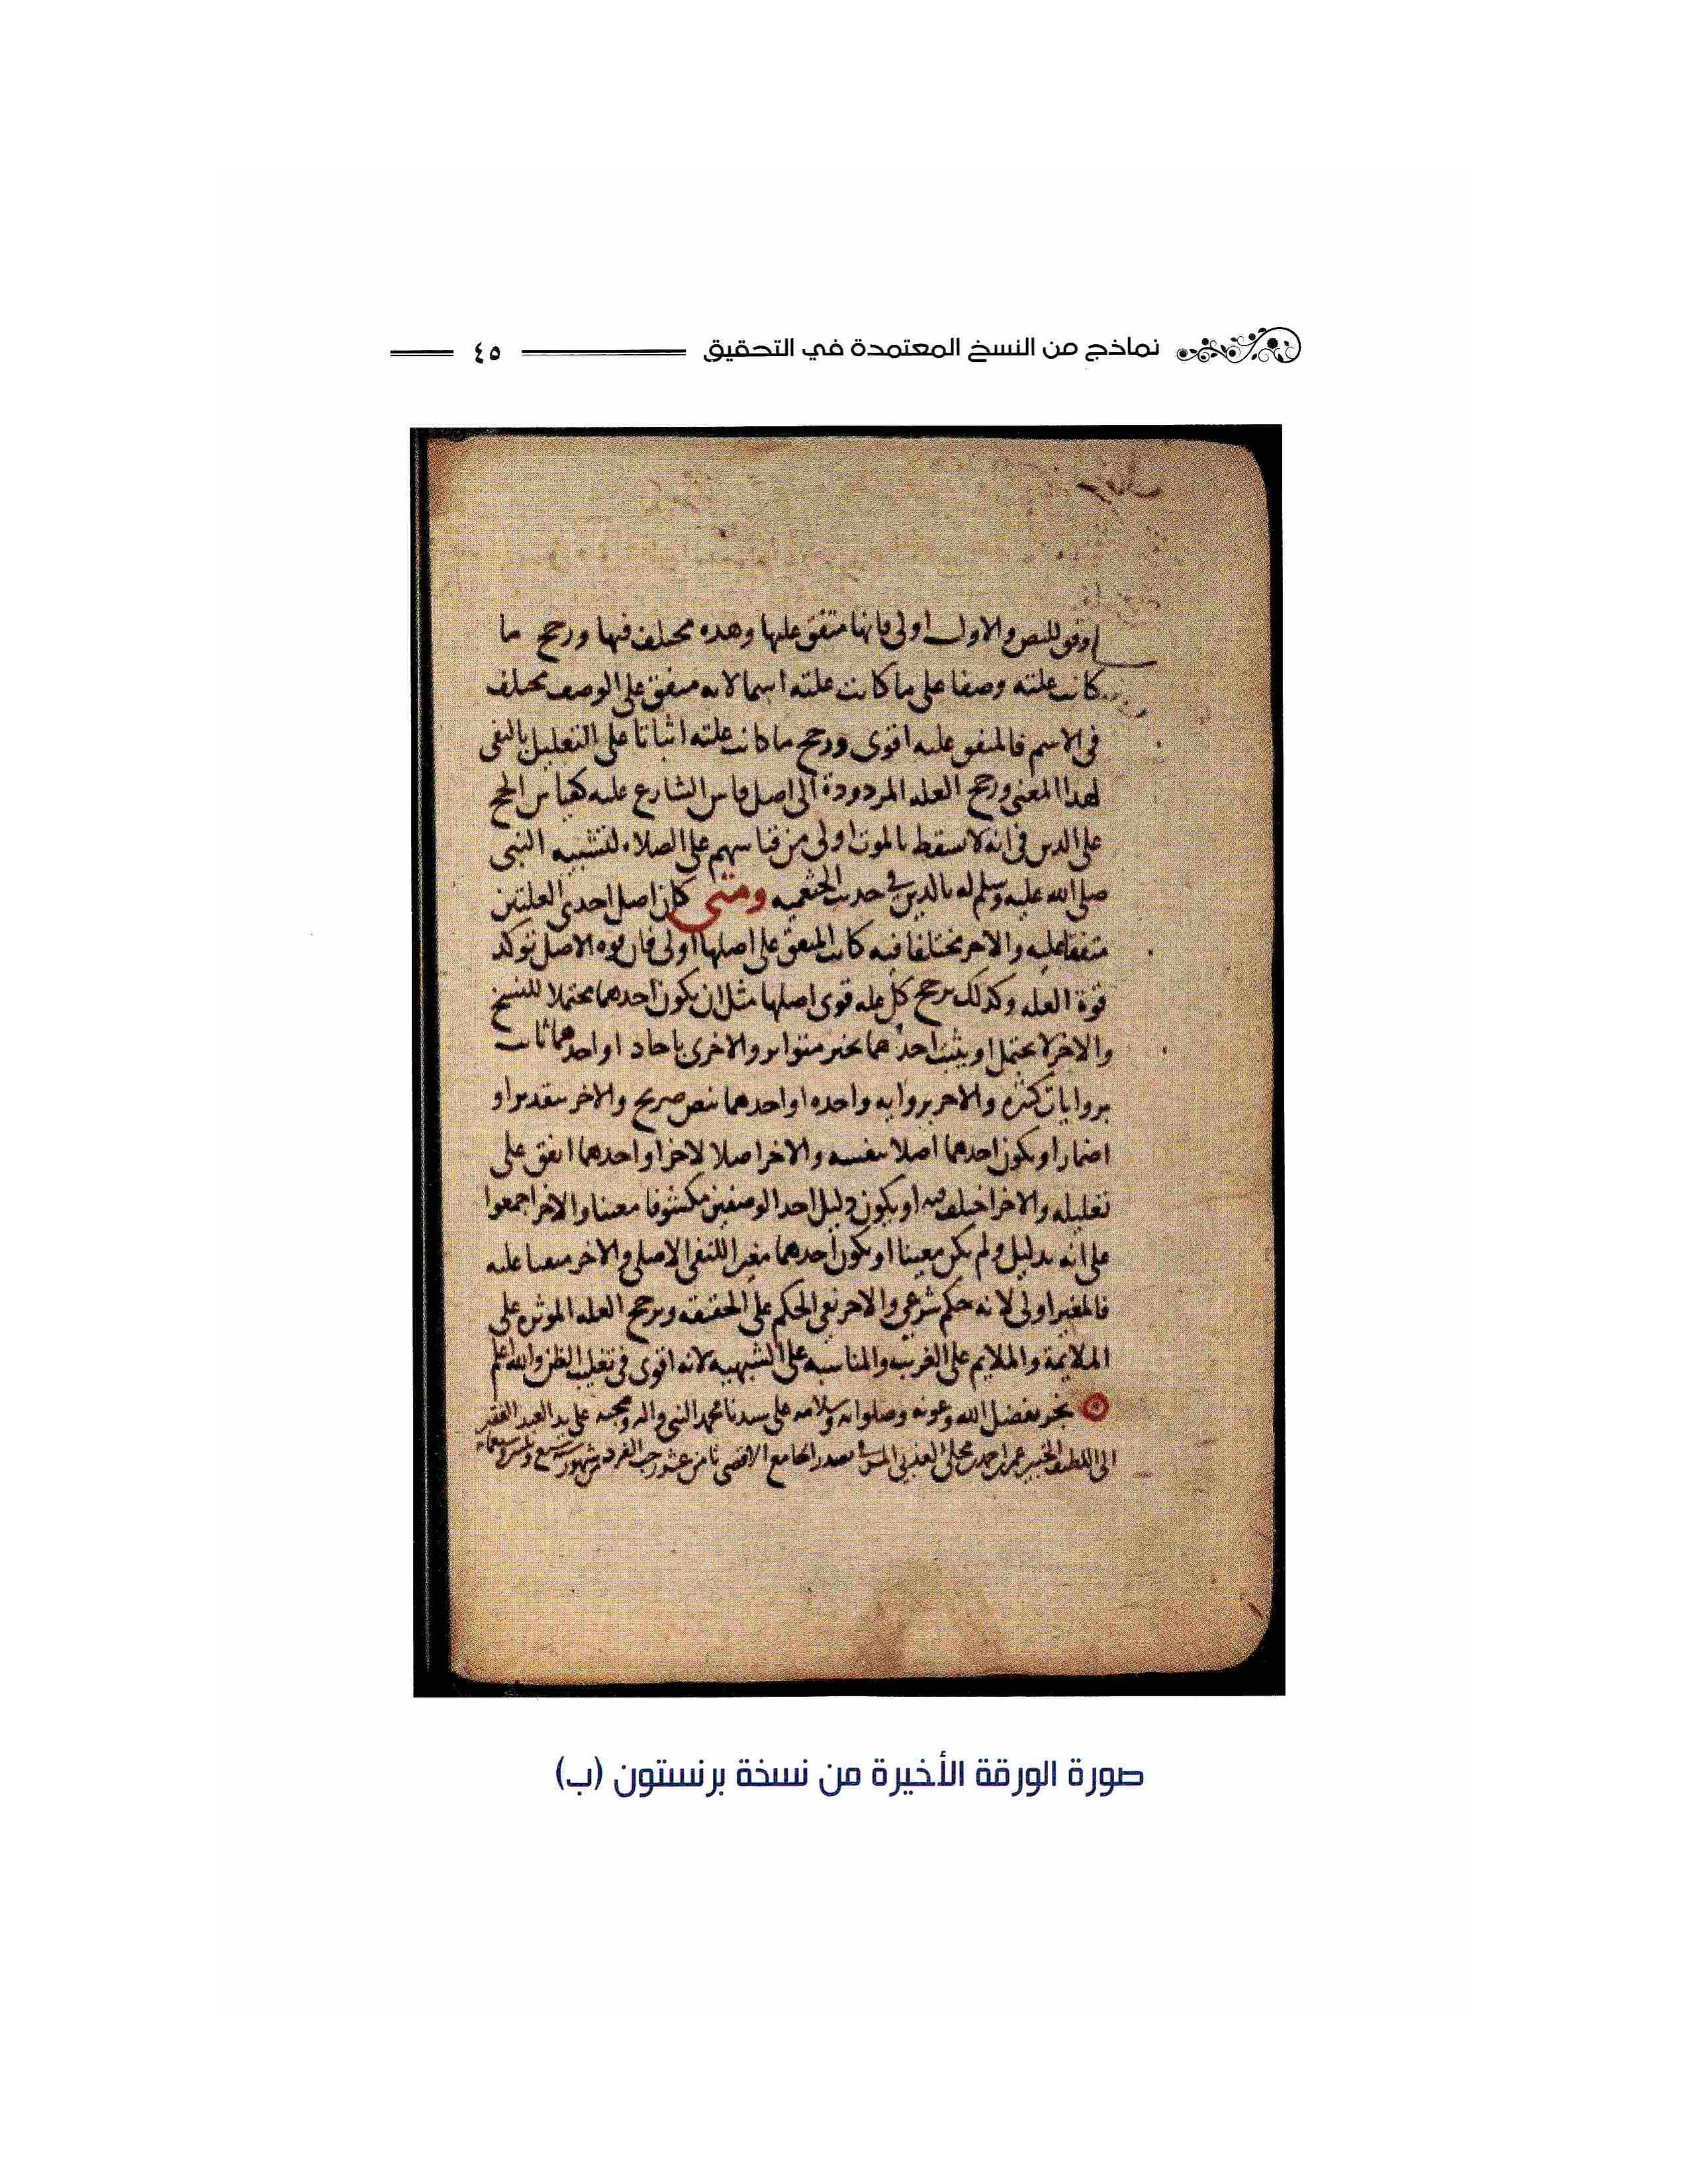 نماذج من النسخ المعتمدة في التحقيق ٤٥
اوفق للنص والاول اولى فانها متفق عليها وهذه مختلف فيها ورجح ما
كانت علته وصفا على ما كانت علته اسما لانه متفق على الوصف مختلف
في الاسم فالمتفق عليه اقوى ورجح ما كانت علته اثباتا على التعليل بالنفي
لهذا المعنى ورجح العله المردودة الى اصل قاس الشارع عليه كقياس الحج
على الدين في انه لا يسقط بالموت اولى من قياسهم على الصلاه لتشبيه النبي
صلى الله عليه وسلم له بالدين في حديث الخثعميه ومتى كان اصل احدى العلتين
متفقا عليه والاخر مختلفا فيه كانت المتفق على اصلها اولى فان قوه الاصل تؤكد
قوة العله وكذلك ترجح كل عله قوى اصلها مثل ان يكون احدهما محتملا للنسخ
والاخر لا يحتمل او يثبت احدهما بخبر متواتر والاخرى باحاد او احدهما ثابت
بروايات كثيره والاخر بروايه واحده او احدهما بنص صريح والاخر بتقدير او
اضمار او يكون احدهما اصلا بنفسه والاخر اصلا لاخر او احدهما اتفق على
تعليله والاخر اختلف فيه او يكون دليل احد الوصفين مكشوفا معينا والاخر اجمعوا
على انه بدليل ولم يكن معينا او يكون احدهما مغيرا للنفي الاصلي والاخر مبقيا عليه
فالمغير اولى لانه حكم شرعي والاخر نفي الحكم على الحقيقه وترجح العله الموثره على
الملايمة والملايم على الغريب والمناسبه على الشبهيه لانه اقوى في تغليب الظن والله اعلم
نجز بفضل الله وعونه وصلواته وسلامه على سيدنا محمد النبي واله وصحبه على يد العبد الفقير
الى اللطيف الخبير عمر بن احمد بن الجامع الاقصى ثامن عشر رجب الفرد من شهور سنة
صورة الورقة الأخيرة من نسخة برنستون (ب)